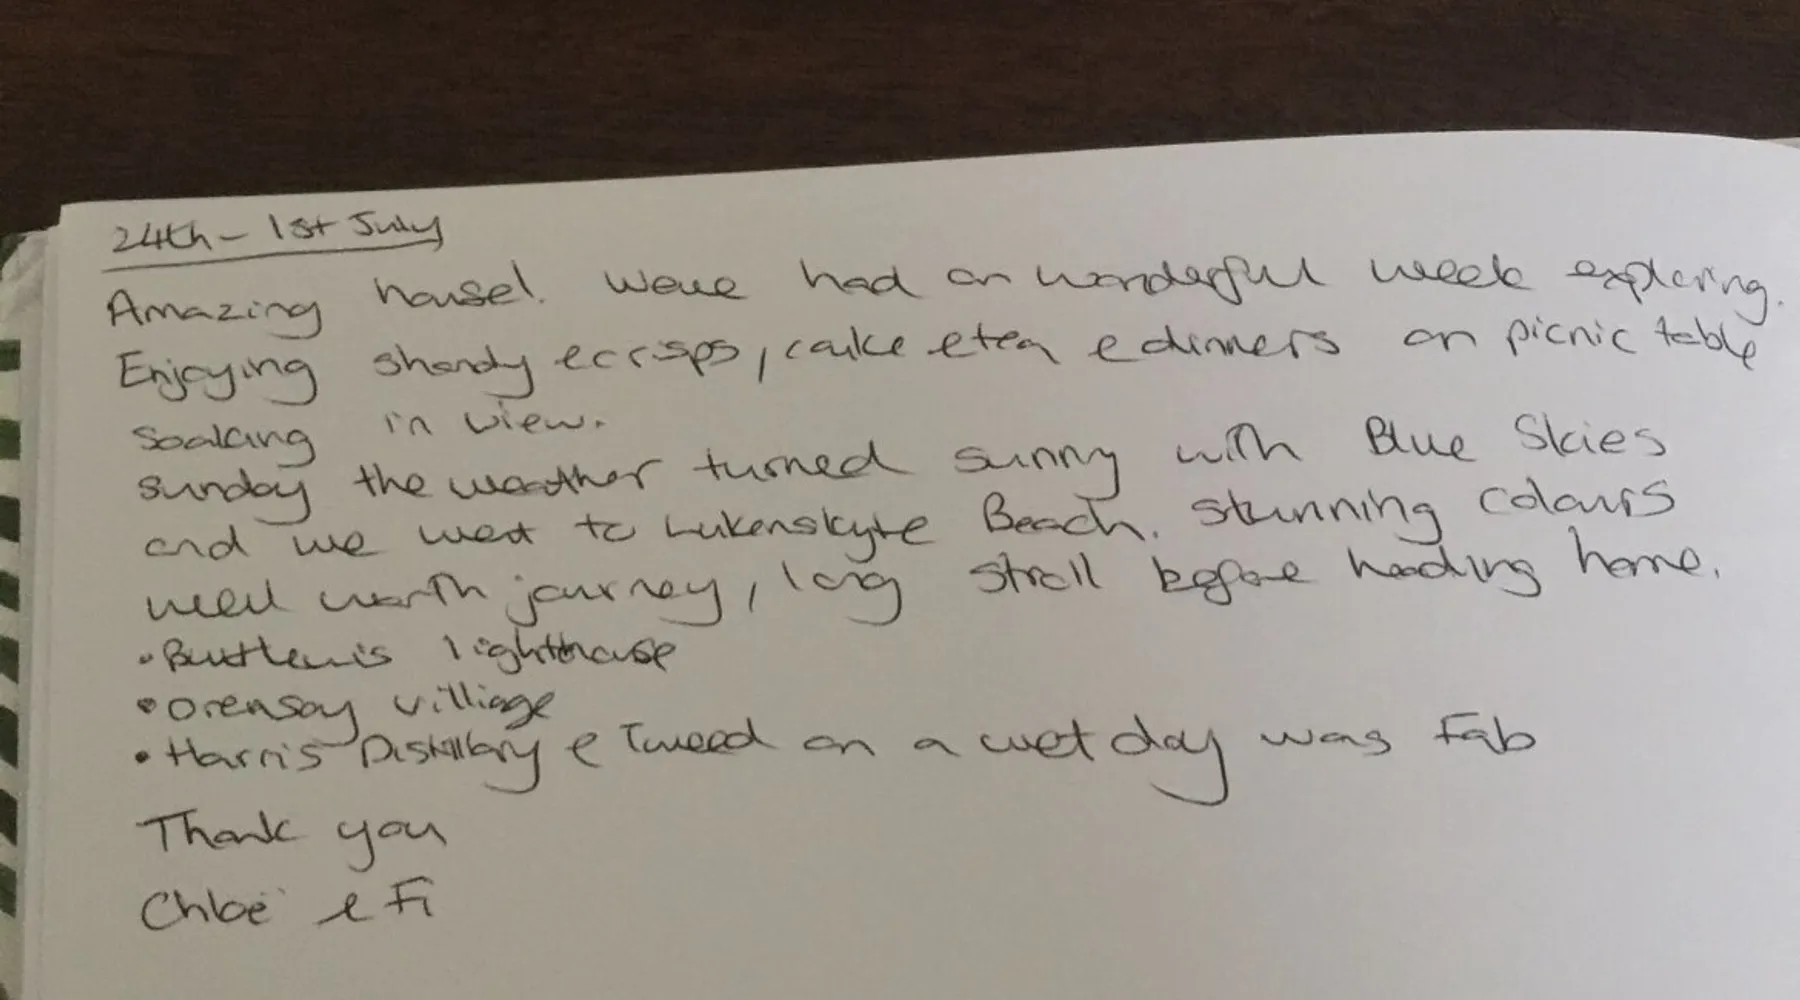 24th - 1st July
Amazing house!. Weve had an wonderful week exploring.
Enjoying shandy & crisps, cake & tea & dinners on picnic table
soaking in view.
sunday the weather turned sunny with Blue Skies
and we went to Lukenskyte Beach. stunning colours
well worth journey, long stroll before heading home.
• lighthouse
• Orensay villiage
• Harris Distillary & Tweed on a wet day was Fab
Thank you
Chloë & Fi